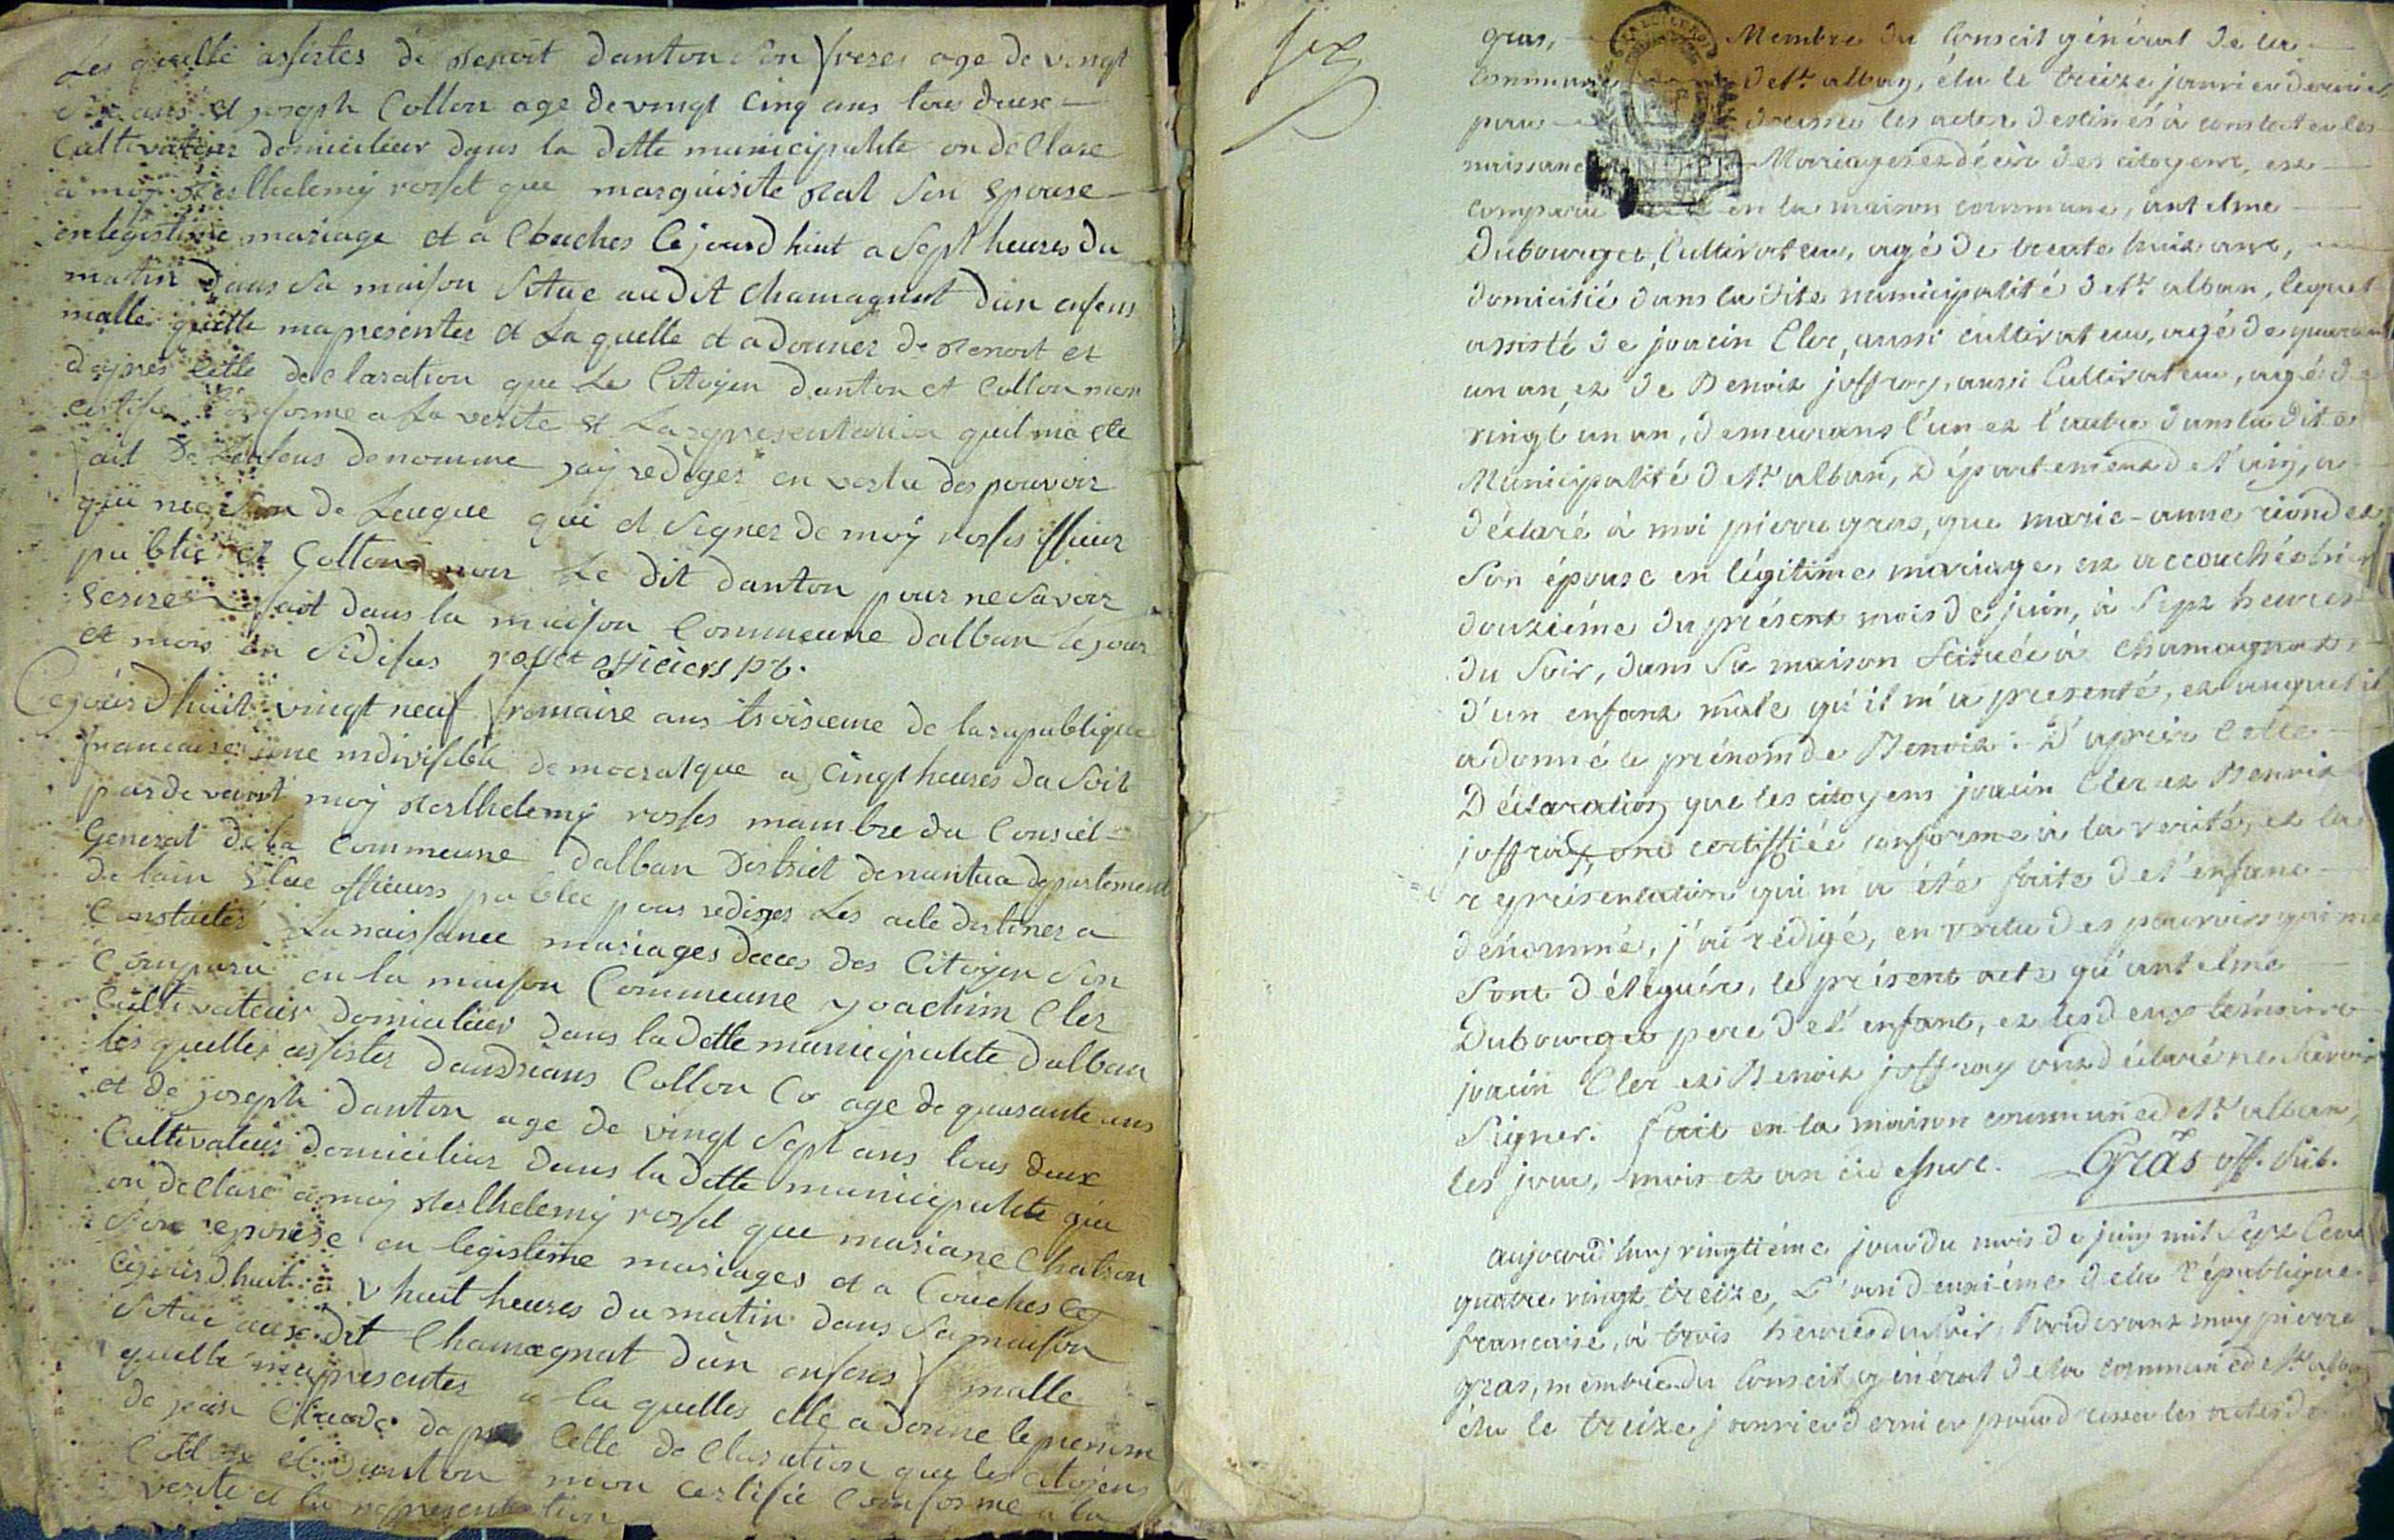 Les quelle assistes de Benoit danton son frere age de vingt
six ans et joseph Collon age de vingt Cinq ans tous deux
Cultivateur domicilier dans la ditte municipalite on declare
a moy Berthelemy rosset que marguerite Bat Son Epouse
en legistime mariage et a Couches Cejourdhuit a Sept heures du
matin dans Sa maison Situe audit Chamagnat dun enfens
malle quelle ma presenter et La quelle et a donner de Benoit et
dapres Cette declaration que Le Citoyen danton et Collon mon
certifie Conforme a La verite et La representation quil ma ete
fait De Lenfens denomme jay rediger en vertu des pouvoir
qui me Son De Legue qui et Signer de moy rosset officier
publie et Collon non Le dit danton pour ne Savoir
Ecrire fait dans la maison Commeune dalban le jour
et mois an Sidesus rosset officiers pb.
Cejourdhuit vingt neuf frimaire ans troisieme de la republique
francaise une indivisible democratque a Cingt heures du Soit
pardevent moy Berthelemy rosset mambre du Conseil
General de la Commeune dalban District denantua departement
de lain Elue officier publie pour rediger Les acte destiner a
Constater La naissance mariages deces des Citoyen Son
Comparu en la maison Commeune joachim Cler
Cultivateur domicilier dans la ditte municipalite dalban
les quelles assister dandreans Collon age de quarante ans
et de joseph danton age de vingt Sept ans tous deux
Cultivateur domicilier dans la ditte municipalite qui
on declare a moy Berthelemy rosset que mariane Chatron
Son epouse en legistime mariages et a Couches Ce
Cejourdhuit a huit heures du matin dans Sa maison
Situe auxdit Chamagnat dun enfens malle
quelle ma presenter a la quelles elle a donne le prenom
de jean Claude dapres Cette declaration que les Citoyens
Collon et danton mon certifie Conforme a la
verite et la representation
six
gras, Membre du Conseil général de la
Commune de St. alban, élu le treize janvier dernier,
pour dresser les actes destinés à constater les
naissance Mariages et décès des citoyens, est
comparu en la maison commune, antelme
Dubourget, Cultivateur, agé de trente huit ans,
domicilié dans la dite municipalité de St. alban, lequel
assisté de joacin Cler, aussi cultivateur, agé de quarante
un an, et de Benoit joffray, aussi Cultivateur, agé de
vingt un an, demeurans l'un et l'autre dans la dite
Municipalité de St. alban, département de l'ain, a
déclaré à moi pierre gras, que marie-anne riondet
Son épouse en légitime mariage, est accouchée hier
douzième du présent mois de juin, à Sept heures
du Soir, dans Sa maison Scituée à Chamagnat,
d'un enfant mâle qu'il m'a presenté, et auquel il
a donné le prénom de Benoit: D'après Cette
Déclaration que les citoyens joacin Cler et Benoit
joffray, ont certiffiée conforme à la vérité, et la
représentation qui m'a été faite de l'enfant
dénommé, j'ai rédigé, en vertu des pouvoirs qui me
Sont délégués, le présent acte qu'antelme
Dubourget pere de l'enfant, et les deux témoins
joacin Cler et Benoit joffray ont déclaré ne Savoir
Signer. fait en la maison commune de St. alban,
les jour, mois et an ci dessus. Gras off. pub.
aujourd'huy vingtième jour du mois de juin mil Sept Cent
quatre vingt treize, L'an deuxième de la République
francaise, à trois heures du Soir, Pardevant moy pierre
gras, membre du Conseil général de la commune de St. alban
élu le treize janvier dernier pour dresser les actes de